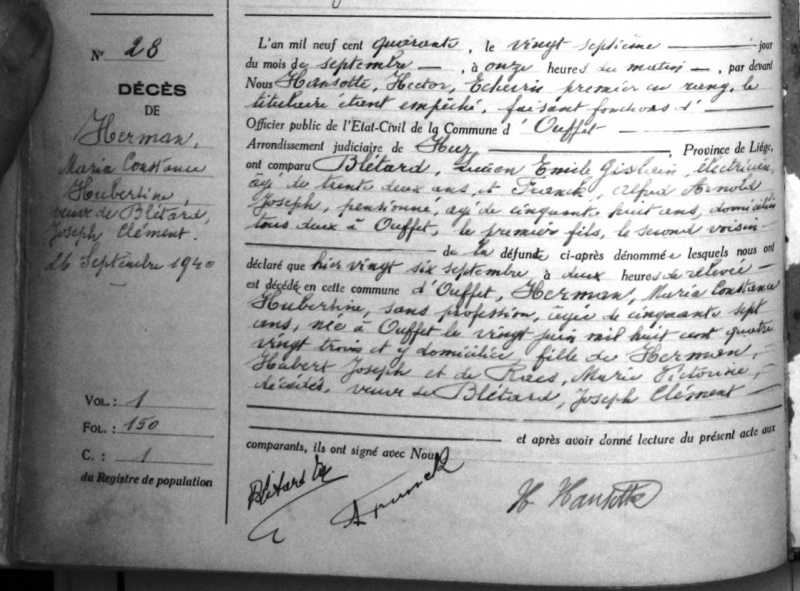 N° 28
DÉCÈS
DE
Herman,
Maria Constance
Hubertine,
veuve de Blétard,
Joseph Clément.
26 Septembre 1940
VOL. : 1
FOL. : 150
C. : 1
du Registre de population
L'an mil neuf cent quarante, le vingt septième jour
du mois de septembre, à onze heures du matin, par devant
Nous Hansotte, Hector, Echevin premier en rang, le
titulaire étant empêché, faisant fonctions d'
Officier public de l'Etat-Civil de la Commune d'Ouffet
Arrondissement judiciaire de Huy, Province de Liége,
ont comparu Blétard, Lucien Emile Gislain, électricien,
âgé de trente deux ans, et Franck, Alfred Arnold
Joseph, pensionné, âgé de cinquante huit ans, domiciliés
tous deux à Ouffet, le premier fils, le second voisin
de la défunte ci-après dénommée lesquels nous ont
déclaré que hier vingt six septembre à deux heures de relevée
est décédée en cette commune d'Ouffet, Herman, Maria Constance
Hubertine, sans profession, âgée de cinquante sept
ans, née à Ouffet le vingt juin mil huit cent quatre
vingt trois et y domiciliée, fille de Herman,
Hubert Joseph et de Raes, Marie Victorine,
décédés, veuve de Blétard, Joseph Clément
et après avoir donné lecture du présent acte aux
comparants, ils ont signé avec Nous
Blétard
Franck
H Hansotte